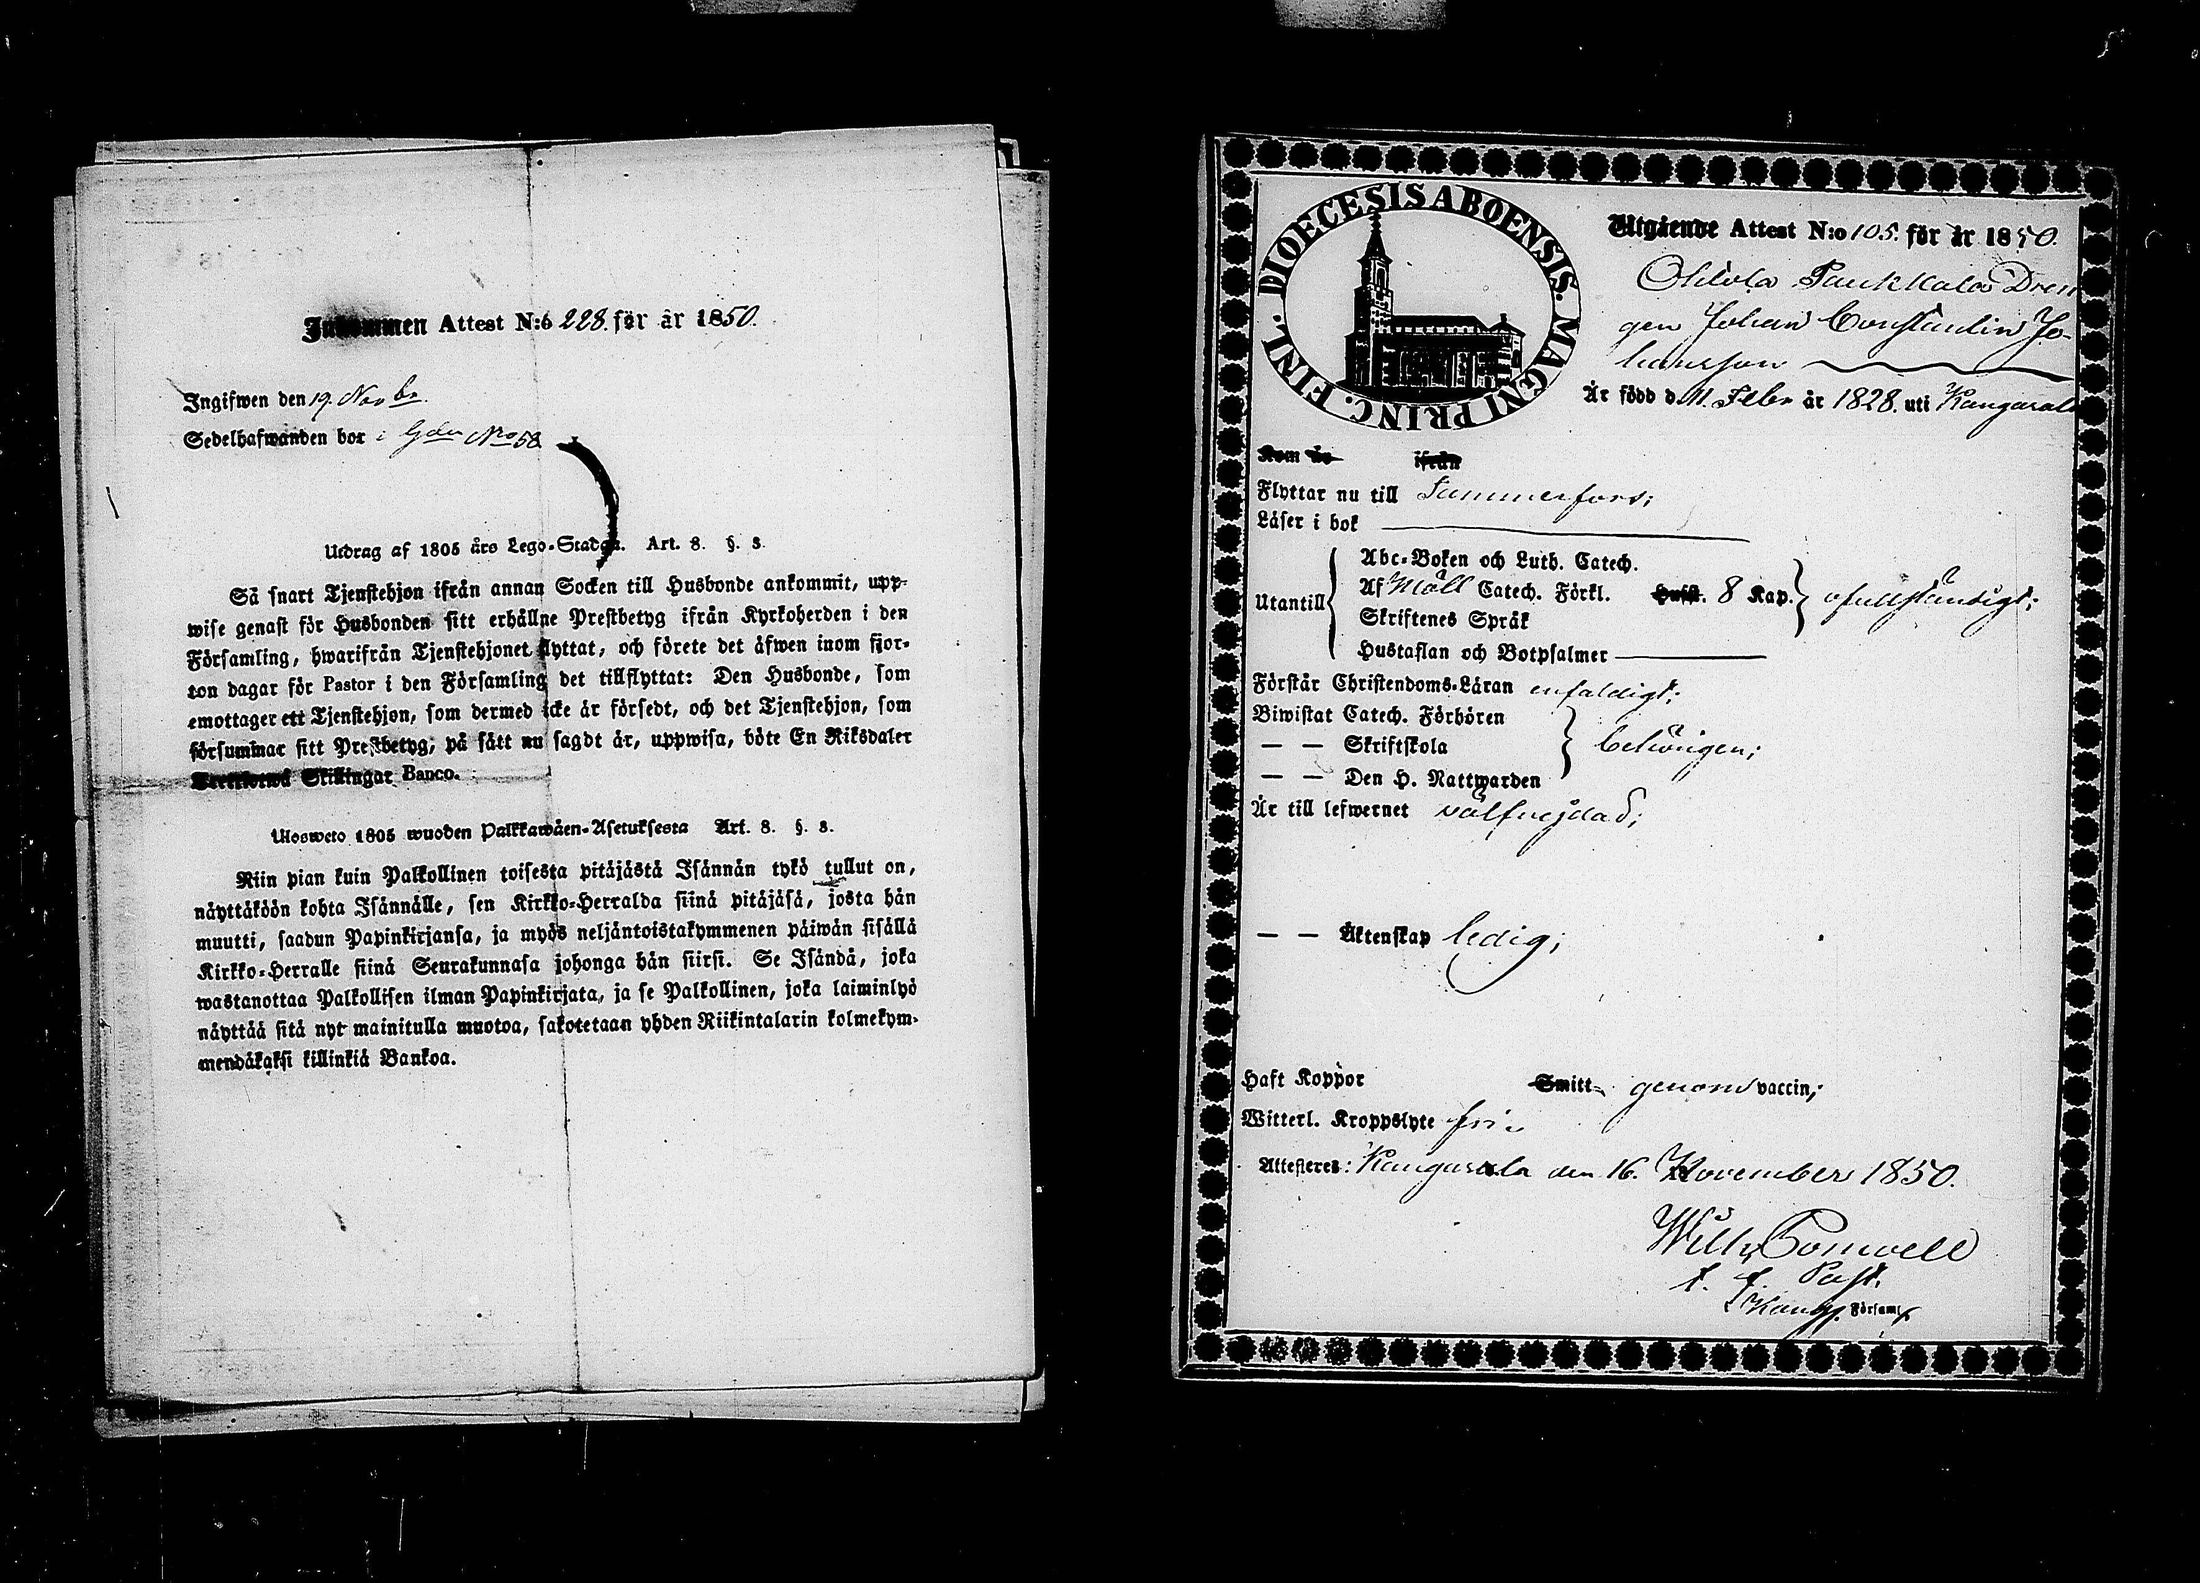 Inkommen Attest N:o 228. för år 1850.
Ingifwen den 19. Novbr.
Sedelhafwanden bor i Gden No 58
Utdrag af 1805 års Lego-Stadga. Art. 8. §. 8.
Så snart Tjenstehjon ifrån annan Socken till Husbonde ankommit, upp-
wise genast för Husbonden sitt erhållne Prestbetyg ifrån Kyrkoherden i den
Församling, hwarifrån Tjenstehjonet flyttat, och förete det äfwen inom fjor-
ton dagar för Pastor i den Församling det tillflyttat: Den Husbonde, som
emottager ett Tjenstehjon, som dermed icke är försedt, och det Tjenstehjon, som
försummar sitt Prestbetyg, på sätt nu sagdt är, uppwisa, böte En Riksdaler
Trettiotwå Skillingar Banco.
Ulosweto 1805 wuoden Palkkawäen-Asetuksesta Art. 8. §. 8.
Niin pian kuin Palkollinen toisesta pitäjästä Isännän tykö tullut on,
näyttäköön kohta Isännälle, sen Kirkko-Herralda siinä pitäjäsä, josta hän
muutti, saadun Papinkirjansa, ja myös neljäntoistakymmenen päiwän sisällä
Kirkko-Herralle siinä Seurakunnasa johonga hän siirsi. Se Isändä, joka
wastanottaa Palkollisen ilman Papinkirjata, ja se Palkollinen, joka laiminlyö
näyttää sitä nyt mainitulla muotoa, sakotetaan yhden Riikintalarin kolmekym-
mendäkaksi killinkiä Bankoa.
DIOECESIS ABOENSIS. MAGNI PRINC. FINL.
Utgående Attest N:o 105. för år 1850.
Ohtola Paukkala Dren
gen Johan Constantin Jo-
hansson
Är född d. 11. Febr år 1828. uti Kangasala
Kom år ifrån
Flyttar nu till Tammerfors;
Läser i bok
Utantill
Abc-Boken och Luth. Catech.
Af Möll Catech. Förkl. Husst. 8 Kap. ofullständigt;
Skriftenes Språk
Hustaflan och Botpsalmer
Förstår Christendoms-Läran enfaldigt;
Biwistat Catech. Förhören
— — Skriftskola behörigen;
— — Den H. Nattwarden
Är till lefwernet välfrejdad;
— — Äktenskap ledig;
Haft Koppor Smitt genom vaccin;
Witterl. Kroppslyte fri.
Attesteres: Kangasala den 16. November 1850.
t. f. Past.
Församl